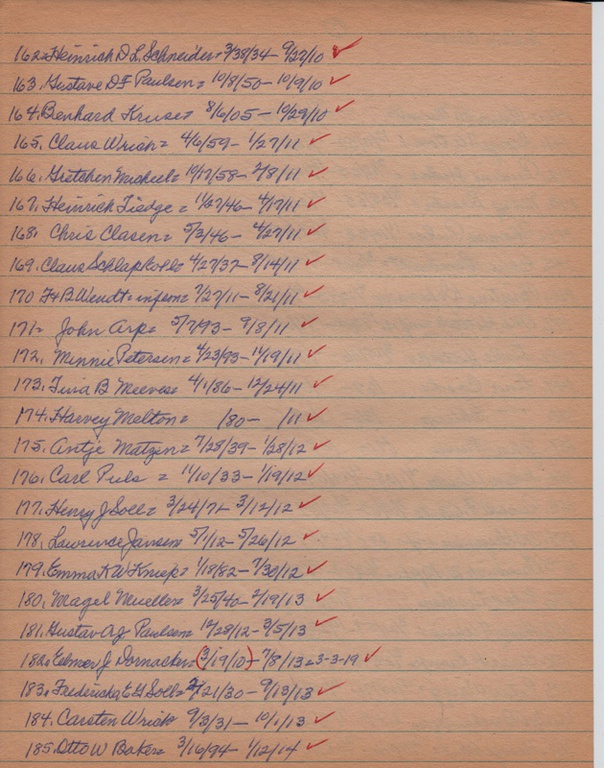 162= Heinrich D L Schneider= 3/38/34 - 9/27/10 ✓
163. Gustave D F Paulsen= 10/8/50 - 10/9/10 ✓
164. Benhard Kruse= 8/6/05 - 10/29/10 ✓
165. Claus Wriok= 4/6/59 - 1/27/11 ✓
166. Gretchen Michel= 10/17/58 - 2/8/11 ✓
167. Heinrich Tiedge= 11/27/46 - 4/17/11 ✓
168. Chris Clasen= 5/3/46 - 4/27/11 ✓
169. Claus Schlapkohl= 4/27/37 - 8/14/11 ✓
170 F+B Wendt= infson= 7/27/11 - 8/21/11 ✓
171= John Arp= 5/7/93 - 9/8/11 ✓
172. Minnie Petersen= 4/23/93 - 11/19/11 ✓
173. Tina B Meeves= 4/1/86 - 12/24/11 ✓
174. Harvey Melton= /80 - /11 ✓
175. Antje Matzen= 7/29/39 - 1/28/12 ✓
176. Carl Puls = 11/10/33 - 1/19/12 ✓
177. Henry J Soll= 3/24/72 3/12/12 ✓
178. Lawrence Jansen= 5/1/12 - 5/26/12 ✓
179. Emma K W Kniep= 1/18/82 - 7/30/12 ✓
180. Magel Mueller= 3/25/40 - 2/19/13 ✓
181. Gustav A J Paulsen= 12/28/12 - 3/5/13 ✓
182= Elmer J Dornacker= (3/19/10) - 7/8/13 = 3-3-19 ✓
183. Fredericka E G Soll= 21/30 - 9/13/13 ✓
184. Carsten Wriok 9/3/31 - 10/1/13 ✓
185. Otto W Baker= 3/16/94 - 1/12/14 ✓